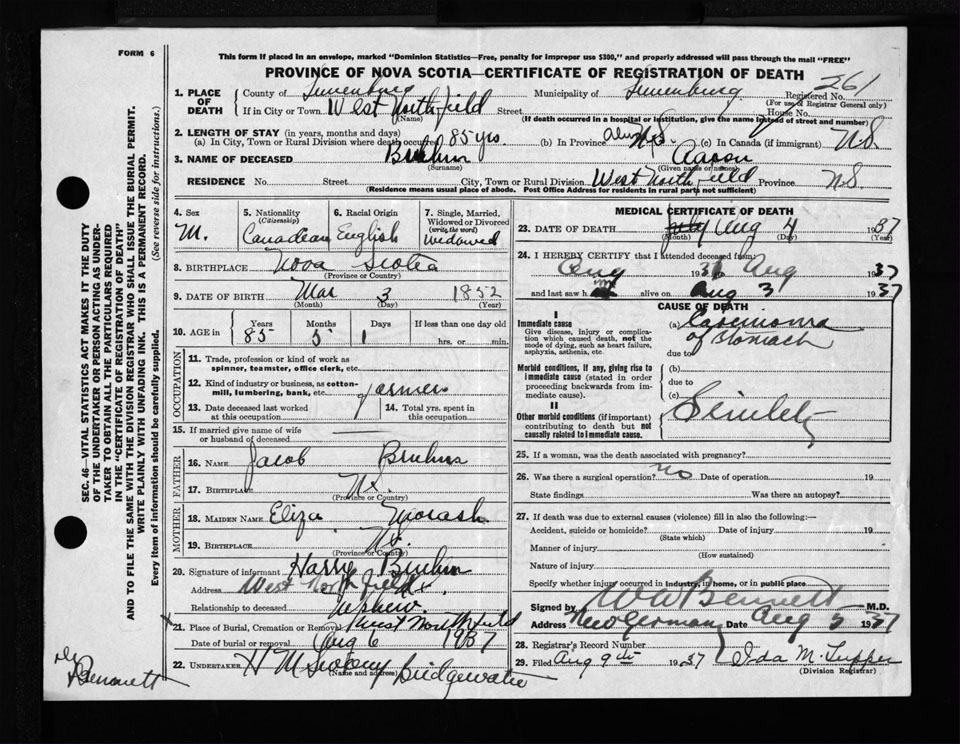 FORM 6
This form if placed in an envelope, marked "Dominion Statistics—Free, penalty for improper use $300," and properly addressed will pass through the mail "FREE"
PROVINCE OF NOVA SCOTIA—CERTIFICATE OF REGISTRATION OF DEATH
261
1. PLACE OF DEATH County of Lunenburg Municipality of Lunenburg Registered No.
(For use of Registrar General only)
If in City or Town West Northfield Street House No.
(Name) (If death occurred in a hospital or institution, give the name instead of street and number)
2. LENGTH OF STAY (in years, months and days)
(a) In City, Town or Rural Division where death occurred 85 yrs. (b) In Province always N.S. (c) In Canada (if immigrant) N.S.
3. NAME OF DECEASED Bruhm Aaron
(Surname) (Given name or names)
RESIDENCE No. Street City, Town or Rural Division West Northfield Province N.S
(Residence means usual place of abode. Post Office Address for residents in rural parts not sufficient)
4. Sex M.
5. Nationality (Citizenship) Canadian
6. Racial Origin English
7. Single, Married, Widowed or Divorced (write the word) Widowed
8. BIRTHPLACE Nova Scotia
(Province or Country)
9. DATE OF BIRTH Mar 3 1852
(Month) (Day) (Year)
10. AGE in Years Months Days If less than one day old
85 5 1 hrs. or min.
OCCUPATION
11. Trade, profession or kind of work as spinner, teamster, office clerk, etc.
12. Kind of industry or business, as cotton-mill, lumbering, bank, etc. farmer
13. Date deceased last worked at this occupation
14. Total yrs. spent in this occupation
15. If married give name of wife or husband of deceased
FATHER
16. Name Jacob Bruhm
17. Birthplace N.S.
(Province or Country)
MOTHER
18. Maiden Name Eliza Morash
19. Birthplace N.S.
(Province or Country)
20. Signature of informant Harry Bruhm
Address West Northfield
Relationship to deceased nephew.
21. Place of Burial, Cremation or Removal West Northfield
Date of burial or removal Aug 6 1937
22. UNDERTAKER H M Sweeny Bridgewater
(Name and address)
MEDICAL CERTIFICATE OF DEATH
23. DATE OF DEATH July Aug 4 1937
(Month) (Day) (Year)
24. I HEREBY CERTIFY that I attended deceased from:
Aug 1936 Aug 1937
and last saw him alive on Aug 3 1937
CAUSE OF DEATH
I
Immediate cause
Give disease, injury or complication which caused death, not the mode of dying, such as heart failure, asphyxia, asthenia, etc.
(a) Carcinoma of Stomach
due to
Morbid conditions, if any, giving rise to immediate cause (stated in order proceeding backwards from immediate cause).
(b)
due to
(c)
II
Other morbid conditions (if important) contributing to death but not causally related to immediate cause.
Senility
25. If a woman, was the death associated with pregnancy?
26. Was there a surgical operation? no Date of operation 19
State findings Was there an autopsy?
27. If death was due to external causes (violence) fill in also the following:—
Accident, suicide or homicide? Date of injury 19
(State which)
Manner of injury
(How sustained)
Nature of injury
Specify whether injury occurred in industry, in home, or in public place
Signed by W W Bennett M.D.
Address New Germany Date Aug 5 1937
28. Registrar's Record Number
29. Filed Aug 9th 1937 Ida M. Tupper
(Division Registrar)
SEC. 46—VITAL STATISTICS ACT MAKES IT THE DUTY OF THE UNDERTAKER OR PERSON ACTING AS UNDERTAKER TO OBTAIN ALL THE PARTICULARS REQUIRED IN THE "CERTIFICATE OF REGISTRATION OF DEATH" AND TO FILE THE SAME WITH THE DIVISION REGISTRAR WHO SHALL ISSUE THE BURIAL PERMIT.
WRITE PLAINLY WITH UNFADING INK. THIS IS A PERMANENT RECORD.
Every item of information should be carefully supplied. (See reverse side for instructions.)
Dr Bennett